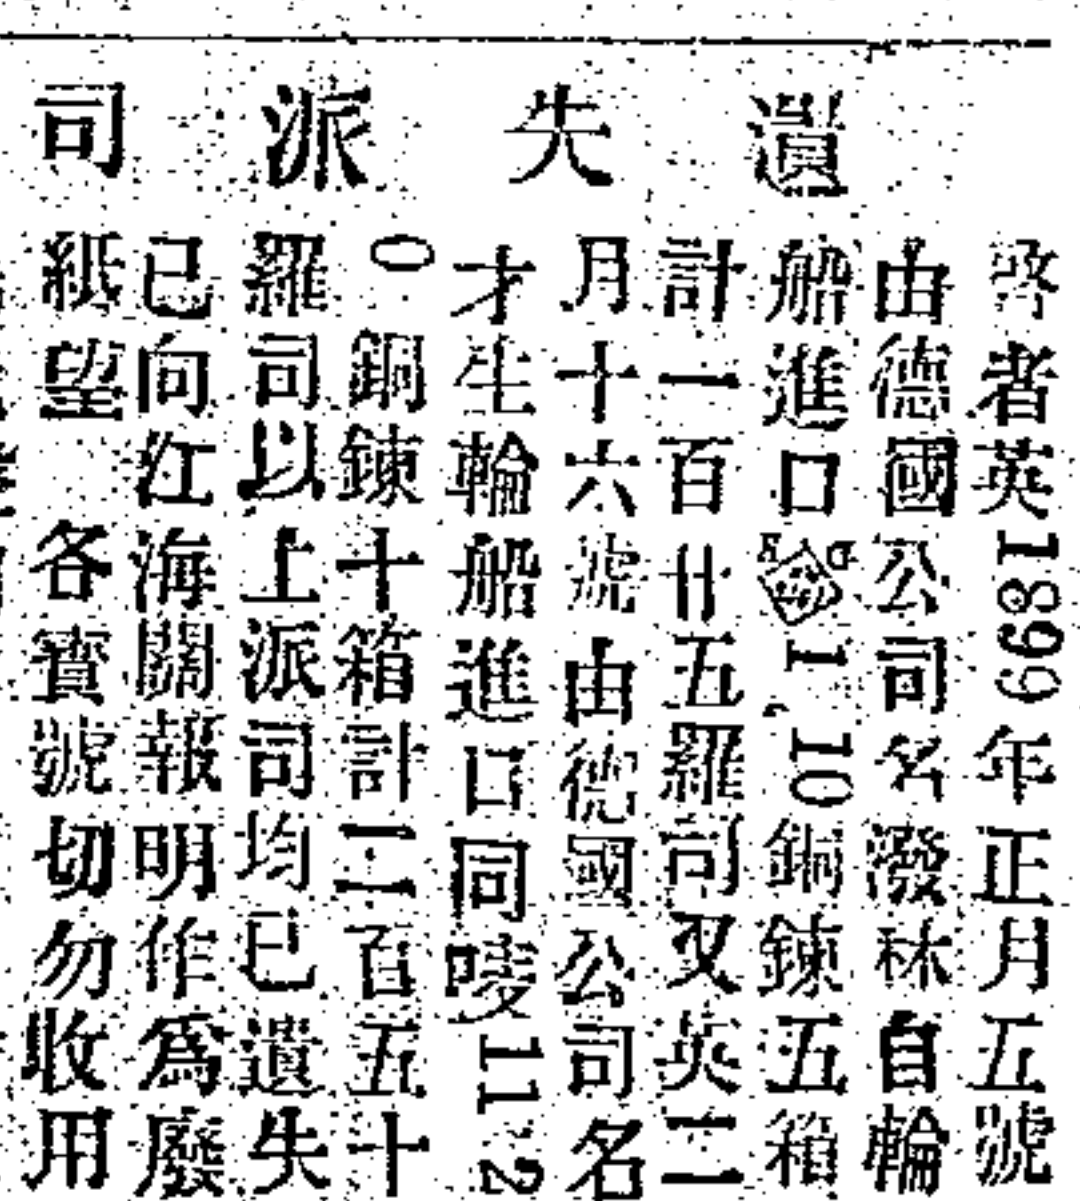 遺失派司
啓者英1899年正月五號
由德國公司名潑秝自輪
船進口 1,10銅鍊五箱
計一百廿五羅司又英二
月十六號由德國公司名
才生輪船進口同嘜11-2
0銅鍊十箱計二百五十
羅司以上派司均已遺失
已向江海關報明作爲廢
紙望 各寶號切勿收用